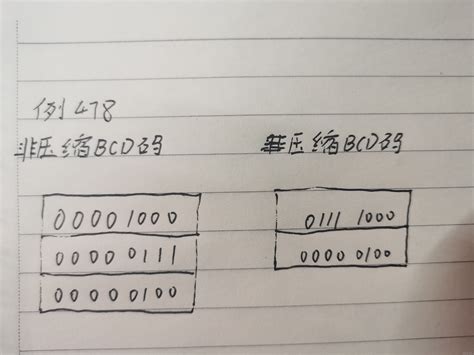 例478
非压缩BCD码
压缩BCD码
00001000
0000 0111
00000100
0111 1000
0000 0100